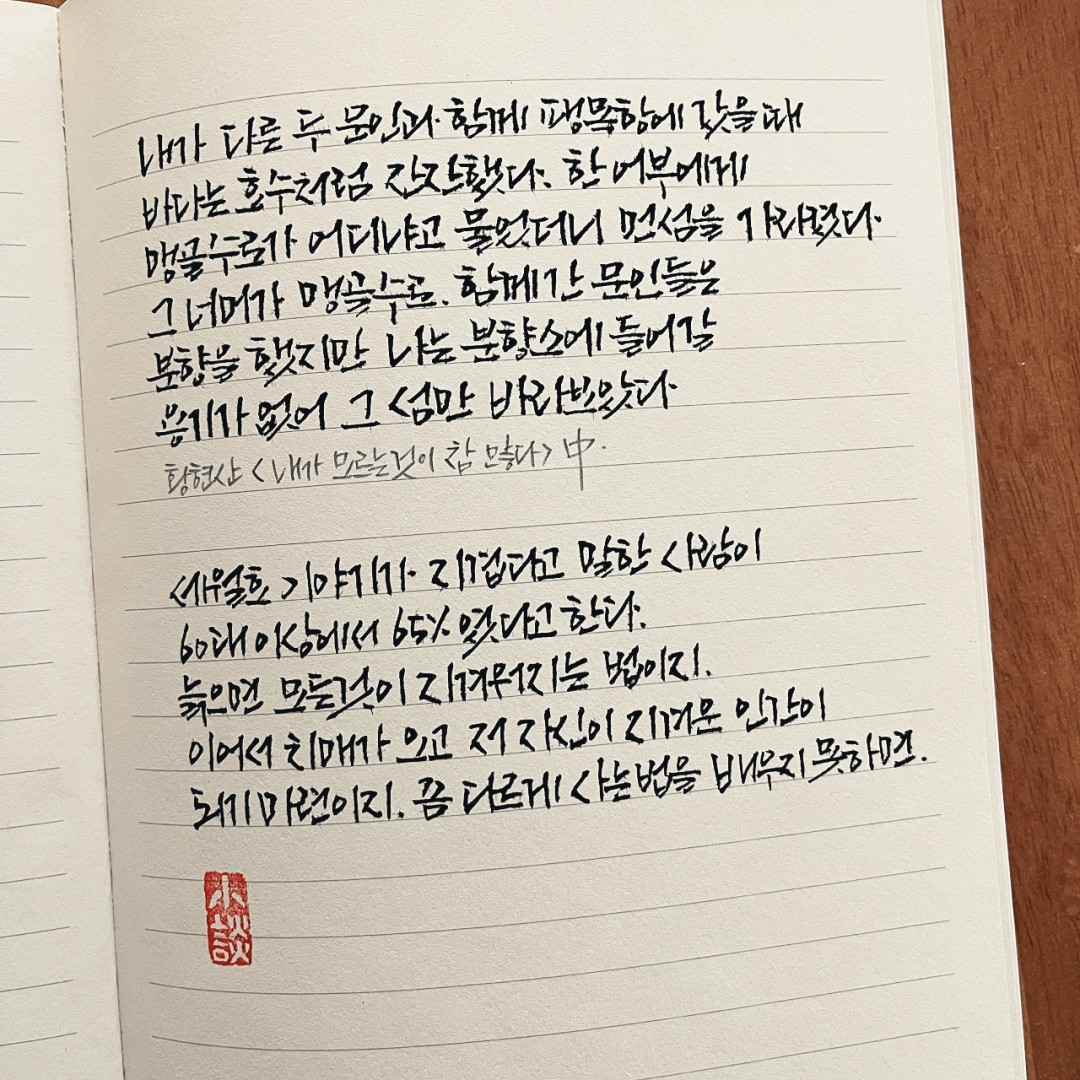 내가 다른 두 문인과 함께 팽목항에 갔을때
바다는 호수처럼 잔잔했다. 한 어부에게
맹골수로가 어디냐고 물었더니 먼섬을 가리켰다.
그 너머가 맹골수로. 함께 간 문인들은
분향을 했지만 나는 분향소에 들어갈
용기가 없어 그 섬만 바라보았다.
황현산 <내가 모르는것이 참 많다> 中.
세월호 이야기가 지겹다고 말한 사람이
60대 이상에서 65% 였다고 한다.
늙으면 모든것이 지겨워지는 법이지.
이어서 치매가 오고 저 자신이 지겨운 인간이
되기 마련이지. 쫌 다르게 사는법을 배우지 못하면.
小談